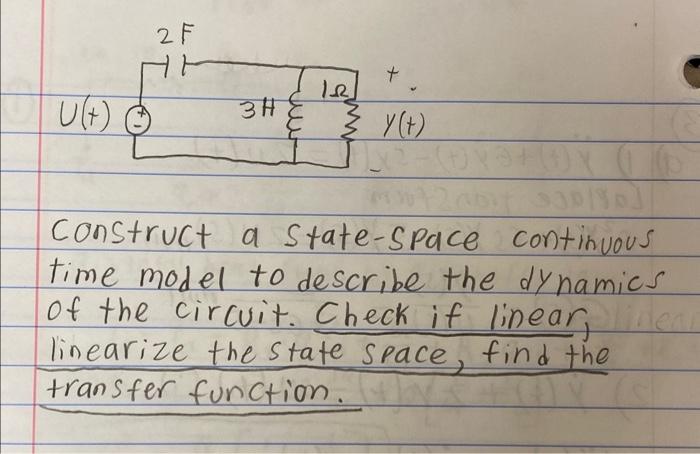 2F
U(t)
+
-
3H
1Ω
+
Y(t)
-
Construct a state-space continuous
time model to describe the dynamics
of the circuit. Check if linear,
linearize the state space, find the
transfer function.